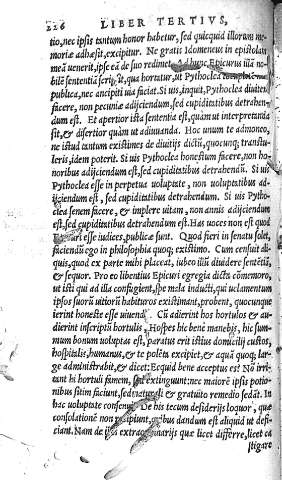 226 LIBER TERTIVS,
tio, nec ipsis tantum honor habetur, sed quicquid illorum me-
moriæ adhæsit, excipitur. Ne gratis Idomeneus in epistolam
meã uenerit, ipse eã de suo redimet. Ad hunc Epicurus illã no-
bilẽ sententiã scripsit, qua hortatur, ut Pythoclea
publica, nec ancipiti uia faciat. Si uis, inquit, Pythoclea diuitem
facere, non pecuniæ adijciendum, sed cupiditatibus detrahen-
dum est. Et apertior ista sententia est, quàm ut interpretanda
sit, & disertior quàm ut adiuuanda. Hoc unum te admoneo,
ne istud tantum existimes de diuitijs dictũ, quocunq; transtu-
leris, idem poterit. Si uis Pythoclea honestum facere, non ho-
noribus adijciendum est, sed cupiditatibus detrahendũ. Si uis
Pythoclea esse in perpetua uoluptate, non uoluptatibus ad-
ijciendum est, sed cupiditatibus detrahendum. Si uis Pytho-
clea senem facere, & implere uitam, non annis adijciendum
est, sed cupiditatibus detrahendum est. Has uoces non est quod
Epicuri esse iudices, publicæ sunt. Quod fieri in senatu solet,
faciendũ ego in philosophia quoq; existimo. Cum censuit ali-
quis, quod ex parte mihi placeat, iubeo illũ diuidere sententiã,
& sequor. Pro eo libentius Epicuri egregia dicta cõmemoro,
ut isti qui ad illa confugient, spe mala inducti, qui uelamentum
ipsos suorũ uitiorũ habituros existimant, probent, quocunque
ierint honeste esse uiuendũ. Cũ adierint hos hortulos & au-
dierint inscriptũ hortulis, Hospes hic bene manebis, hic sum-
mum bonum uoluptas est, paratus erit istius domicilij custos,
hospitalis, humanus, & te polẽta excipiet, & aquã quoq; large
administrabit, & dicet: Ecquid bene acceptus es? Nõ irri-
tant hi hortuli famem, sed extinguunt: nec maiorẽ ipsis potio-
nibus sitim faciunt, sed naturali & gratuito remedio sedãt. In
hac uoluptate consenui. De his tecum desiderijs loquor, quæ
consolationẽ non recipiunt, quibus dandum est aliquid ut desi-
nant. Nam de illis extraordinarijs quæ licet differre, licet ca
stigare